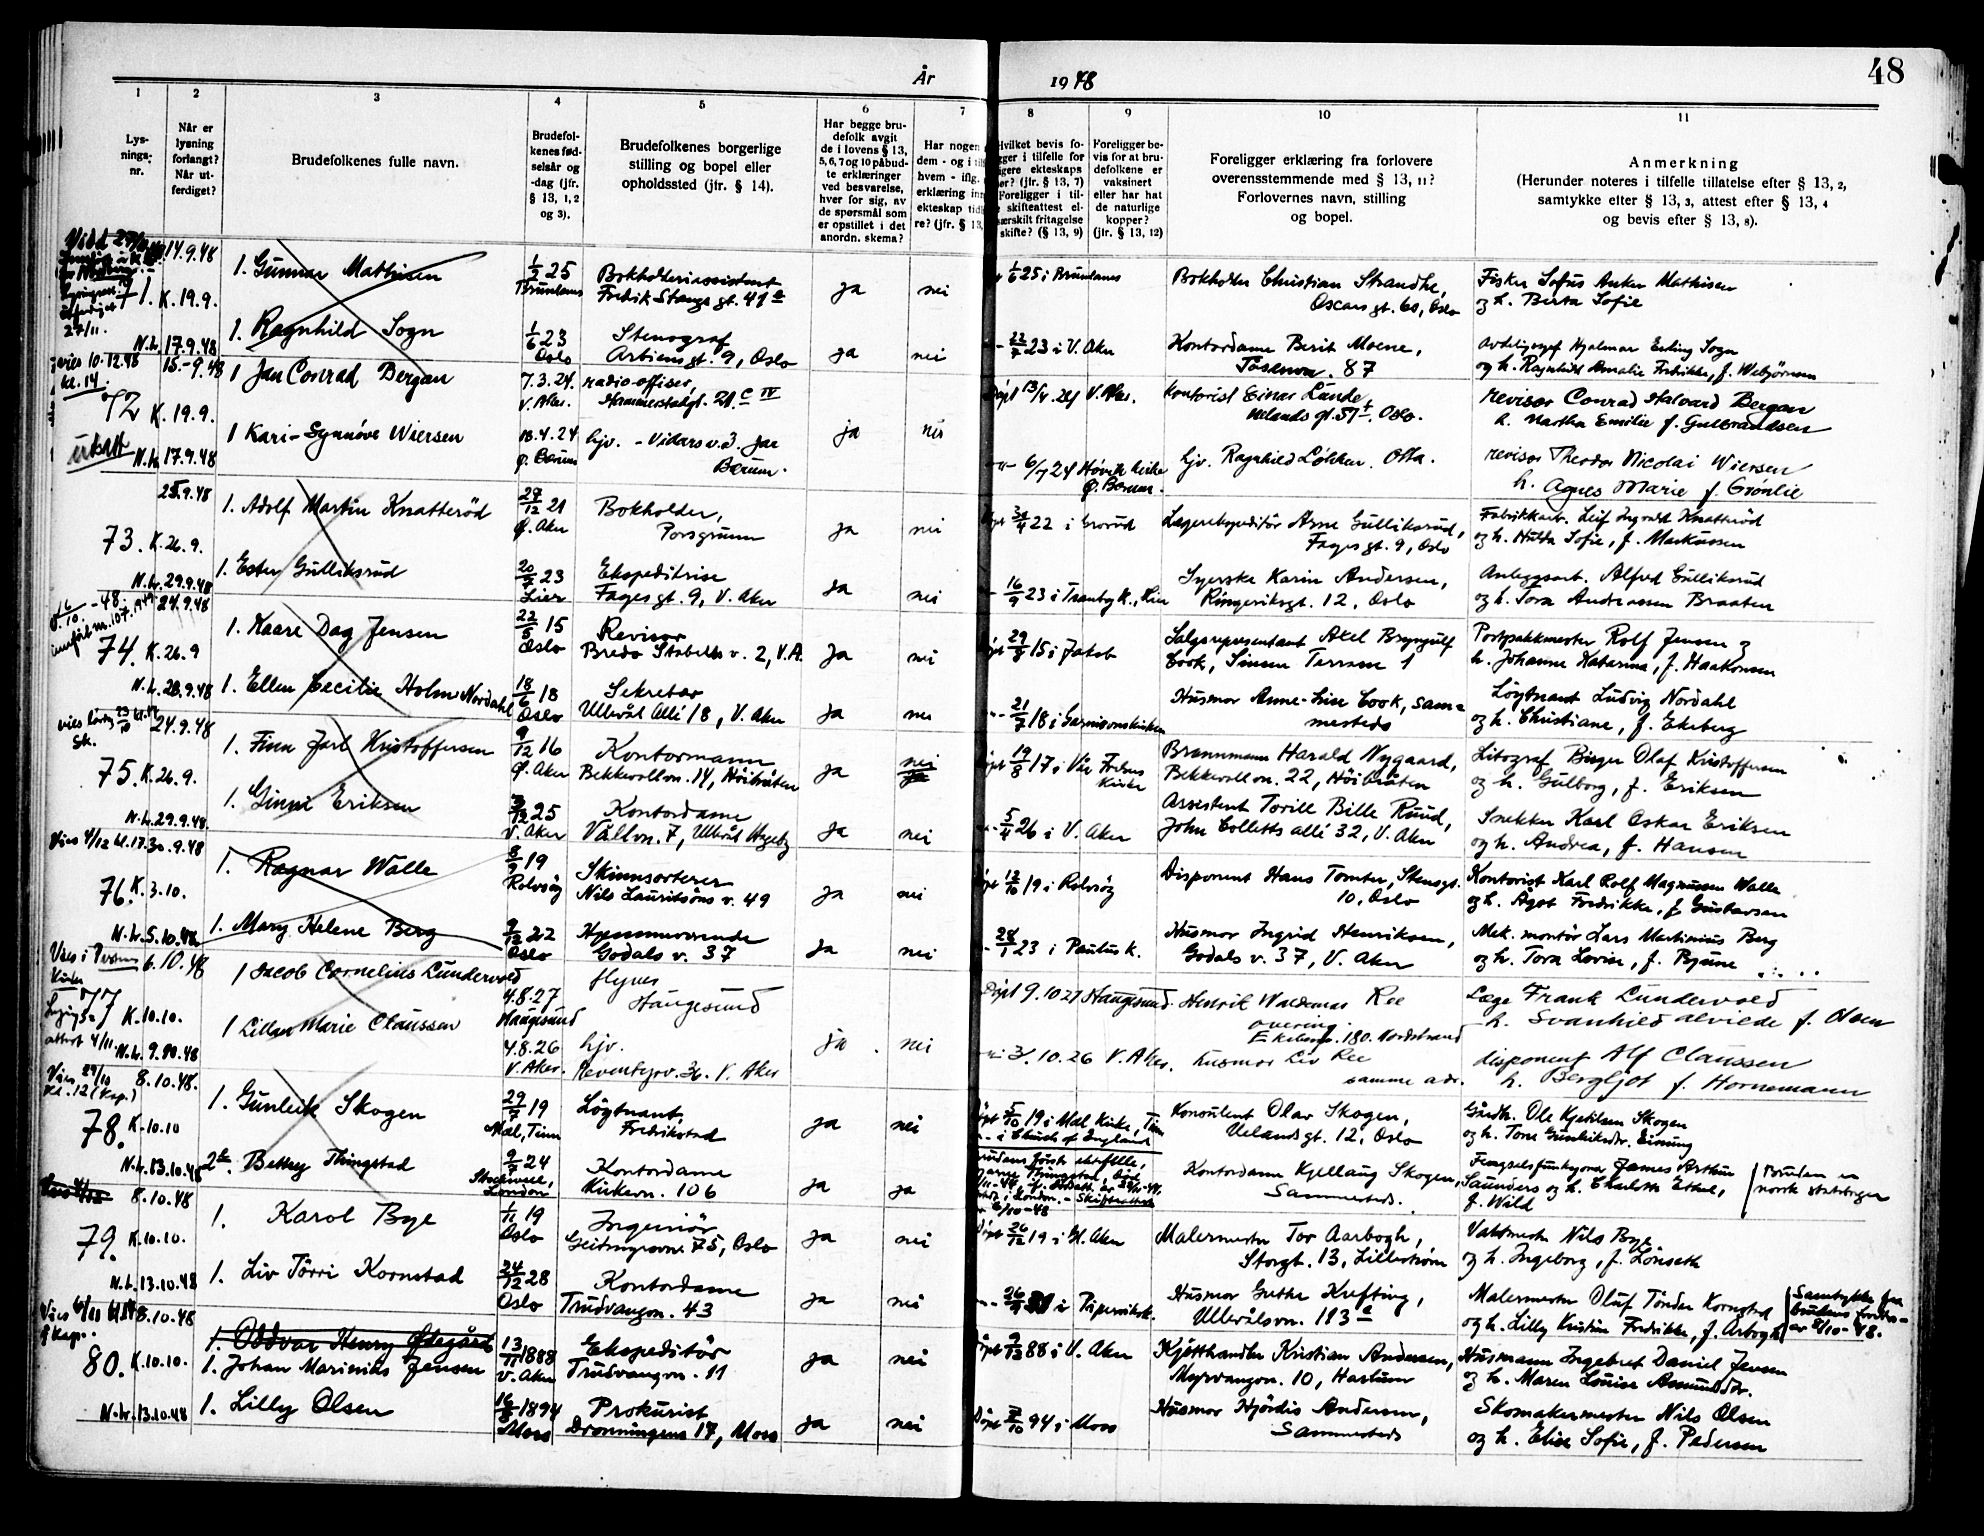 År 1948
48
1
2
3
4
5
6
7
8
9
10
11
Lys-
nings-
nr.
Når er
lysning
forlangt?
Når ut-
ferdiget?
Brudefolkenes fulle navn.
Brudefol-
kenes fød-
selsår og
-dag (jfr.
§ 13, 1, 2
og 3).
Brudefolkenes borgerlige
stilling og bopel eller
opholdssted (jfr. § 14).
Har begge bru-
defolk avgit
de i lovens § 13,
5, 6, 7 og 10 påbud-
te erklæringer
ved besvarelse,
hver for sig, av
de spørsmål som
er opstillet i det
anordn. skema?
Har nogen
dem - og i
hvem - iflg.
erklæring inn
ekteskap tid
re? (jfr. § 13,
Hvilket bevis fo-
gger i tilfelle for
gere ekteskaps
ør? (jfr. § 13, 7)
Foreligger i til-
skifteattest el-
særskilt fritagelse
skifte? (§ 13, 9)
Foreligger be-
vis for at bru-
defolkene er
vaksinert
eller har hat
de naturlige
kopper?
(jfr. § 13, 12)
Foreligger erklæring fra forlovere
overensstemmende med § 13, 11?
Forlovernes navn, stilling
og bopel.
Anmerkning
(Herunder noteres i tilfelle tillatelse efter § 13, 2,
samtykke efter § 13, 3, attest efter § 13, 4
og bevis efter § 13, 8).
71. 14.9.48 K. 19.9.
1. Gunnar Mathisen
1/2 25 Brunlanes
Bokholderiassistent
Fredrik Stangs gt. 41
ja nei
1/6 25 i Brunlanes
Bokholder Christian Strandhe,
Oscars gt. 60, Oslo
Fisker Sofus Anker Mathisen
og h. Berta Sofie
N.L. 17.9.48
1. Ragnhild Sogn
1/6 23 Oslo
Stenograf
Arbiens gt. 9, Oslo
ja nei
22/7 23 i V. Aker
Kontordame Berit Moene,
Tåsenvn. 87
Hjalmar Erling Sogn
og h. Ragnhild Amalie Fredrikke, f.
vies 10.12.48
kl. 14.
72 15.-9.48 K. 19.9.
1 Jan Conrad Bergan
7.3.24. V. Aker.
radio-offiser,
Hammerstadgt. 21.c IV
ja nei
Døpt 13/4.24 V. Aker.
Kontorist Einar Lunde,
Uelands gt. 57 Oslo.
revisor Conrad Halvard Bergan
h. Martha Emilie f. Gulbrandsen
utsatt
N.L. 17.9.48
1 Kari-Synnöve Wiersen
18.4.24 Ø. Bærum
hjv. - Vidars v. 3. Jar
Bærum.
ja nei
6/7 24 Høvik kirke
Ø. Bærum.
hjv. Ragnhild Løkken. Otta.
revisor Theodor Nicolai Wiersen
h. Agnes Marie f. Grønlie
73. 25.9.48 K. 26.9.
1. Adolf Martin Knatteröd
27/12 21 Ø. Aker
Bokholder,
Porsgrunn
ja nei
22 i Grorud
Lagerekspeditör Arne Gulliksrud,
Fagesgt. 9, Oslo
Fabrikkarb. Leif Ingvald Knatteröd
og h. Hulda Sofie, f. Markussen
N.L. 29.9.48
1. Ester Gulliksrud
20/7 23 Lier
Ekspeditrise
Fages gt. 9, V. Aker
ja nei
16/9 23 i Tranby K., Lier
Syerske Karin Andersen,
Ringeriksgt. 12, Oslo
Anleggsarb. Alfred Gulliksrud
og h. Tora Andreassen Braaten
74. 24.9.48 K. 26.9
1. Kaare Dag Jensen
22/5 15 Oslo
Revisor
Bredo Stabells v. 2, V.A.
ja nei
29/8 15 i Jakob
Salgsrepresentant Axel Bryngulf
Cook, Sinsen Terrasse 1
Postpakkmester Rolf Jensen og
h. Johanne Katarina, f. Haakonsen
N.L. 28.9.48
1. Ellen Cecilie Holm Nordahl
18/6 18 Oslo
Sekretær
Ullevål Allé 18, V. Aker
ja nei
21/7 18 i Garnisonskirken
Husmor Anne-Lise Cook, sam-
mesteds
Löytnant Ludvig Nordahl
og h. Christiane, f. Ekeberg
75. 24.9.48 K. 26.9.
1. Finn Jarl Kristoffersen
9/12 16 Ø. Aker
Kontormann
Bekkevollvn. 14, Höibråten
ja nei
19/8 17 i Vår Frelsers
Kirke
Brannmann Harald Nygaard,
Bekkevollvn. 22, Höibråten
Litograf Birger Olaf Kristoffersen
og h. Gulborg, f. Eriksen
N.L. 29.9.48.
1. Ginni Eriksen
25 V. Aker
Kontordame
Vållvn. 7, Ullevål Hageby
ja nei
5/4 26 i V. Aker
Assistent Torill Bille Ruud,
John Colletts allé 32, V. Aker
Snekker Karl Oskar Eriksen
og h. Andrea, f. Hansen
Vies 4/12 kl. 17. 30.9.48
76. K. 3.10.
1. Ragnar Walle
8/9 19 Rolvsöy
Skinnsorterer
Nils Lauritsöns v. 49
ja nei
12/10 19 i Rolvsöy
Disponent Hans Tomter, Stensgt.
10, Oslo
Kontorist Karl Rolf Magnussen Walle
og h. Ågot Fredrikke, f. Gustavsen
N.L. 5.10.48
1. Mary Helene Berg
9/12 22 Oslo
Hjemmeværende
Godals v. 37
ja nei
28/1 23 i Paulus k.
Husmor Ingrid Henriksen,
Godals v. 37, V. Aker
Mek. montör Lars Martinius Berg
og h. Tora Lovise, f. Bjune
77 6.10.48 K. 10.10.
1 Jacob Cornelius Lundervold
4.8.27 Haugesund
flyver
Haugesund
Døpt 9.10.27 Haugesund.
Henrik Waldemar Ree
Ekebergv. 180. Nordstrand
Læge Frank Lundervold
h. Svanhild Alvilde f. Olsen
attest 4/11 N.L. 9.10.48
1 Lillan Marie Claussen
4.8.26 V. Aker.
hjv.
Reventyrv. 36. V. Aker
ja nei
31.10.26 V. Aker.
husmor Liv Ree
samme adr.
disponent Alf Claussen
h. Bergljot f. Hornemann
Kl. 12 (Kap.)
78. 8.10.48. K. 10.10
1. Gunleik Skogen
29/7 19 Mæl, Tinn
Löytnant,
Fredrikstad
ja nei
5/10 19 i Mæl Kirke, Tinn
i Church of England
Konsulent Olav Skogen,
Uelandsgt. 12, Oslo
Gårdbr. Ole Kjetilsen Skogen
og h. Tone Gunleiksdr. Einung
N.L. 13.10.48
2. Bettey Thingstad
9/7 24
London
Kontordame
Kirkevn. 106
ja ja
Kontordame Kjellaug Skogen,
Sammesteds.
Fengselsfunksjonær James Arthur
Saunders og h. Charlotte Ethel,
f. Wild
Bruden er
norsk statsborger
79. 8.10.48 K. 10.10.
1. Karol Bye
1/11 19 Oslo
Ingeniör
Geitmyrsvn. 75, Oslo
ja nei
26/12 19 i Gl. Aker
Malermester Tor Aarbogh,
Storgt. 13, Lillestrøm
Vaktmester Nils Bye
og h. Ingeborg, f. Lönseth
N.L. 13.10.48
1. Liv Törri Kornstad
24/12 28 Oslo
Kontordame
Trudvangvn. 43
ja nei
i Piperviksk.
Husmor Grethe Krefting,
Ullevålsvn. 113
Malermester Oluf Tönder Kornstad
og h. Lilly Kristine Fredrikke, f. Arbogh
Samtykke fra
brudens foreldre
av 8/10-48.
80. 8.10.48 K. 10.10.
1. Oddvar Henry Ødegård
1. Johan Marinius Jensen
13/11 1888 V. Aker
Ekspeditör
Trudvangvn. 11
ja nei
88 i V. Aker
Kjötthandler Kristian Andersen,
Myrvangvn. 10, Haslum
Husmann Ingebret Daniel Jensen
og h. Maren Louise Asmundsdr.
N.L. 13.10.48
1. Lilly Olsen
1894 Moss
Prokurist
Dronningens 17, Moss
ja nei
94 i Moss
Husmor Hjördis Andersen,
Sammesteds
Skomakermester Nils Olsen
og h. Elise Sofie, f. Pedersen